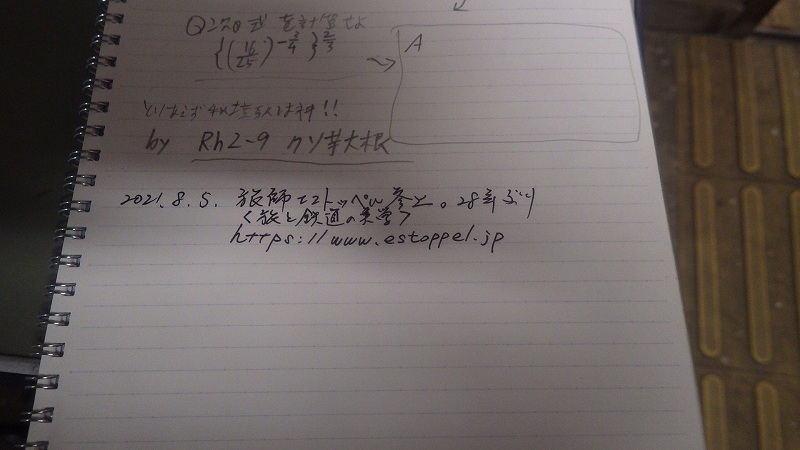 Q 次の式を計算せよ
{(16/25)^-3/4}^2/3
A
とりあえず
by Rh2-9 クソ芋大根
2021.8.5. 旅師エストッペル参上。28年ぶり
<旅と鉄道の美学>
https://www.estoppel.jp